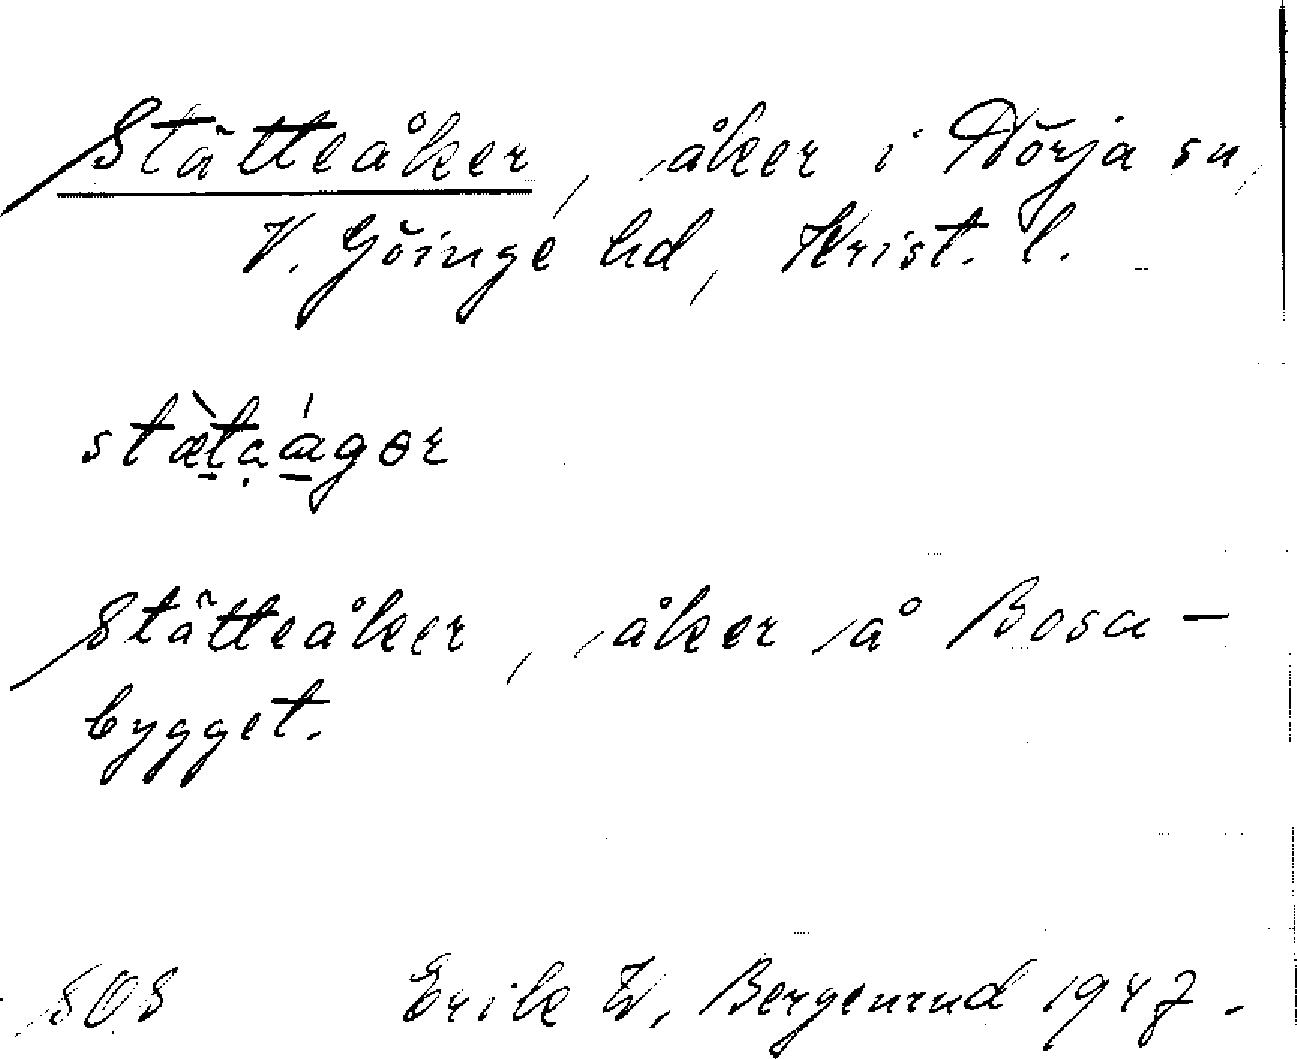 Stätteåker, åker i Hörja sn,
V. Göinge hd, Krist. l.
stæ̀t̠ạɑ̠́gər
Stätteåker, åker å Bosa-
bygget.
SOS Erik W. Bergenrud 1947.